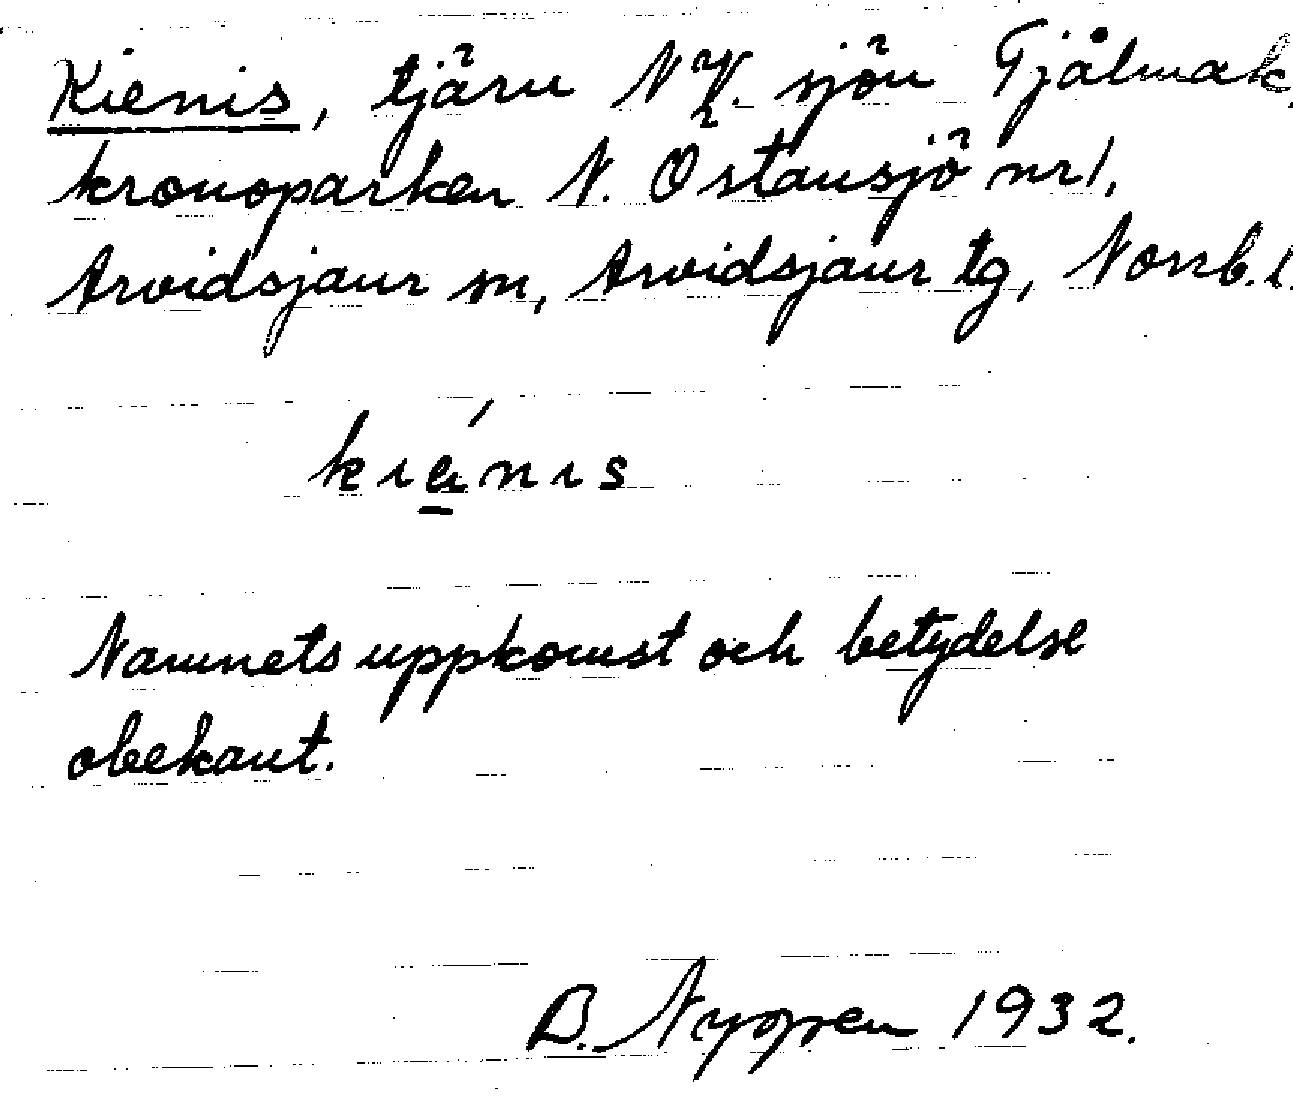 Kienis, tjärn NV. sjön Tjålmak,
kronoparken N. Östansjö nr 1,
Arvidsjaur sn, Arvidsjaur tg, Norrb. l.
kiénis
Namnets uppkomst och betydelse
obekant.
B. Nyppen 1932.